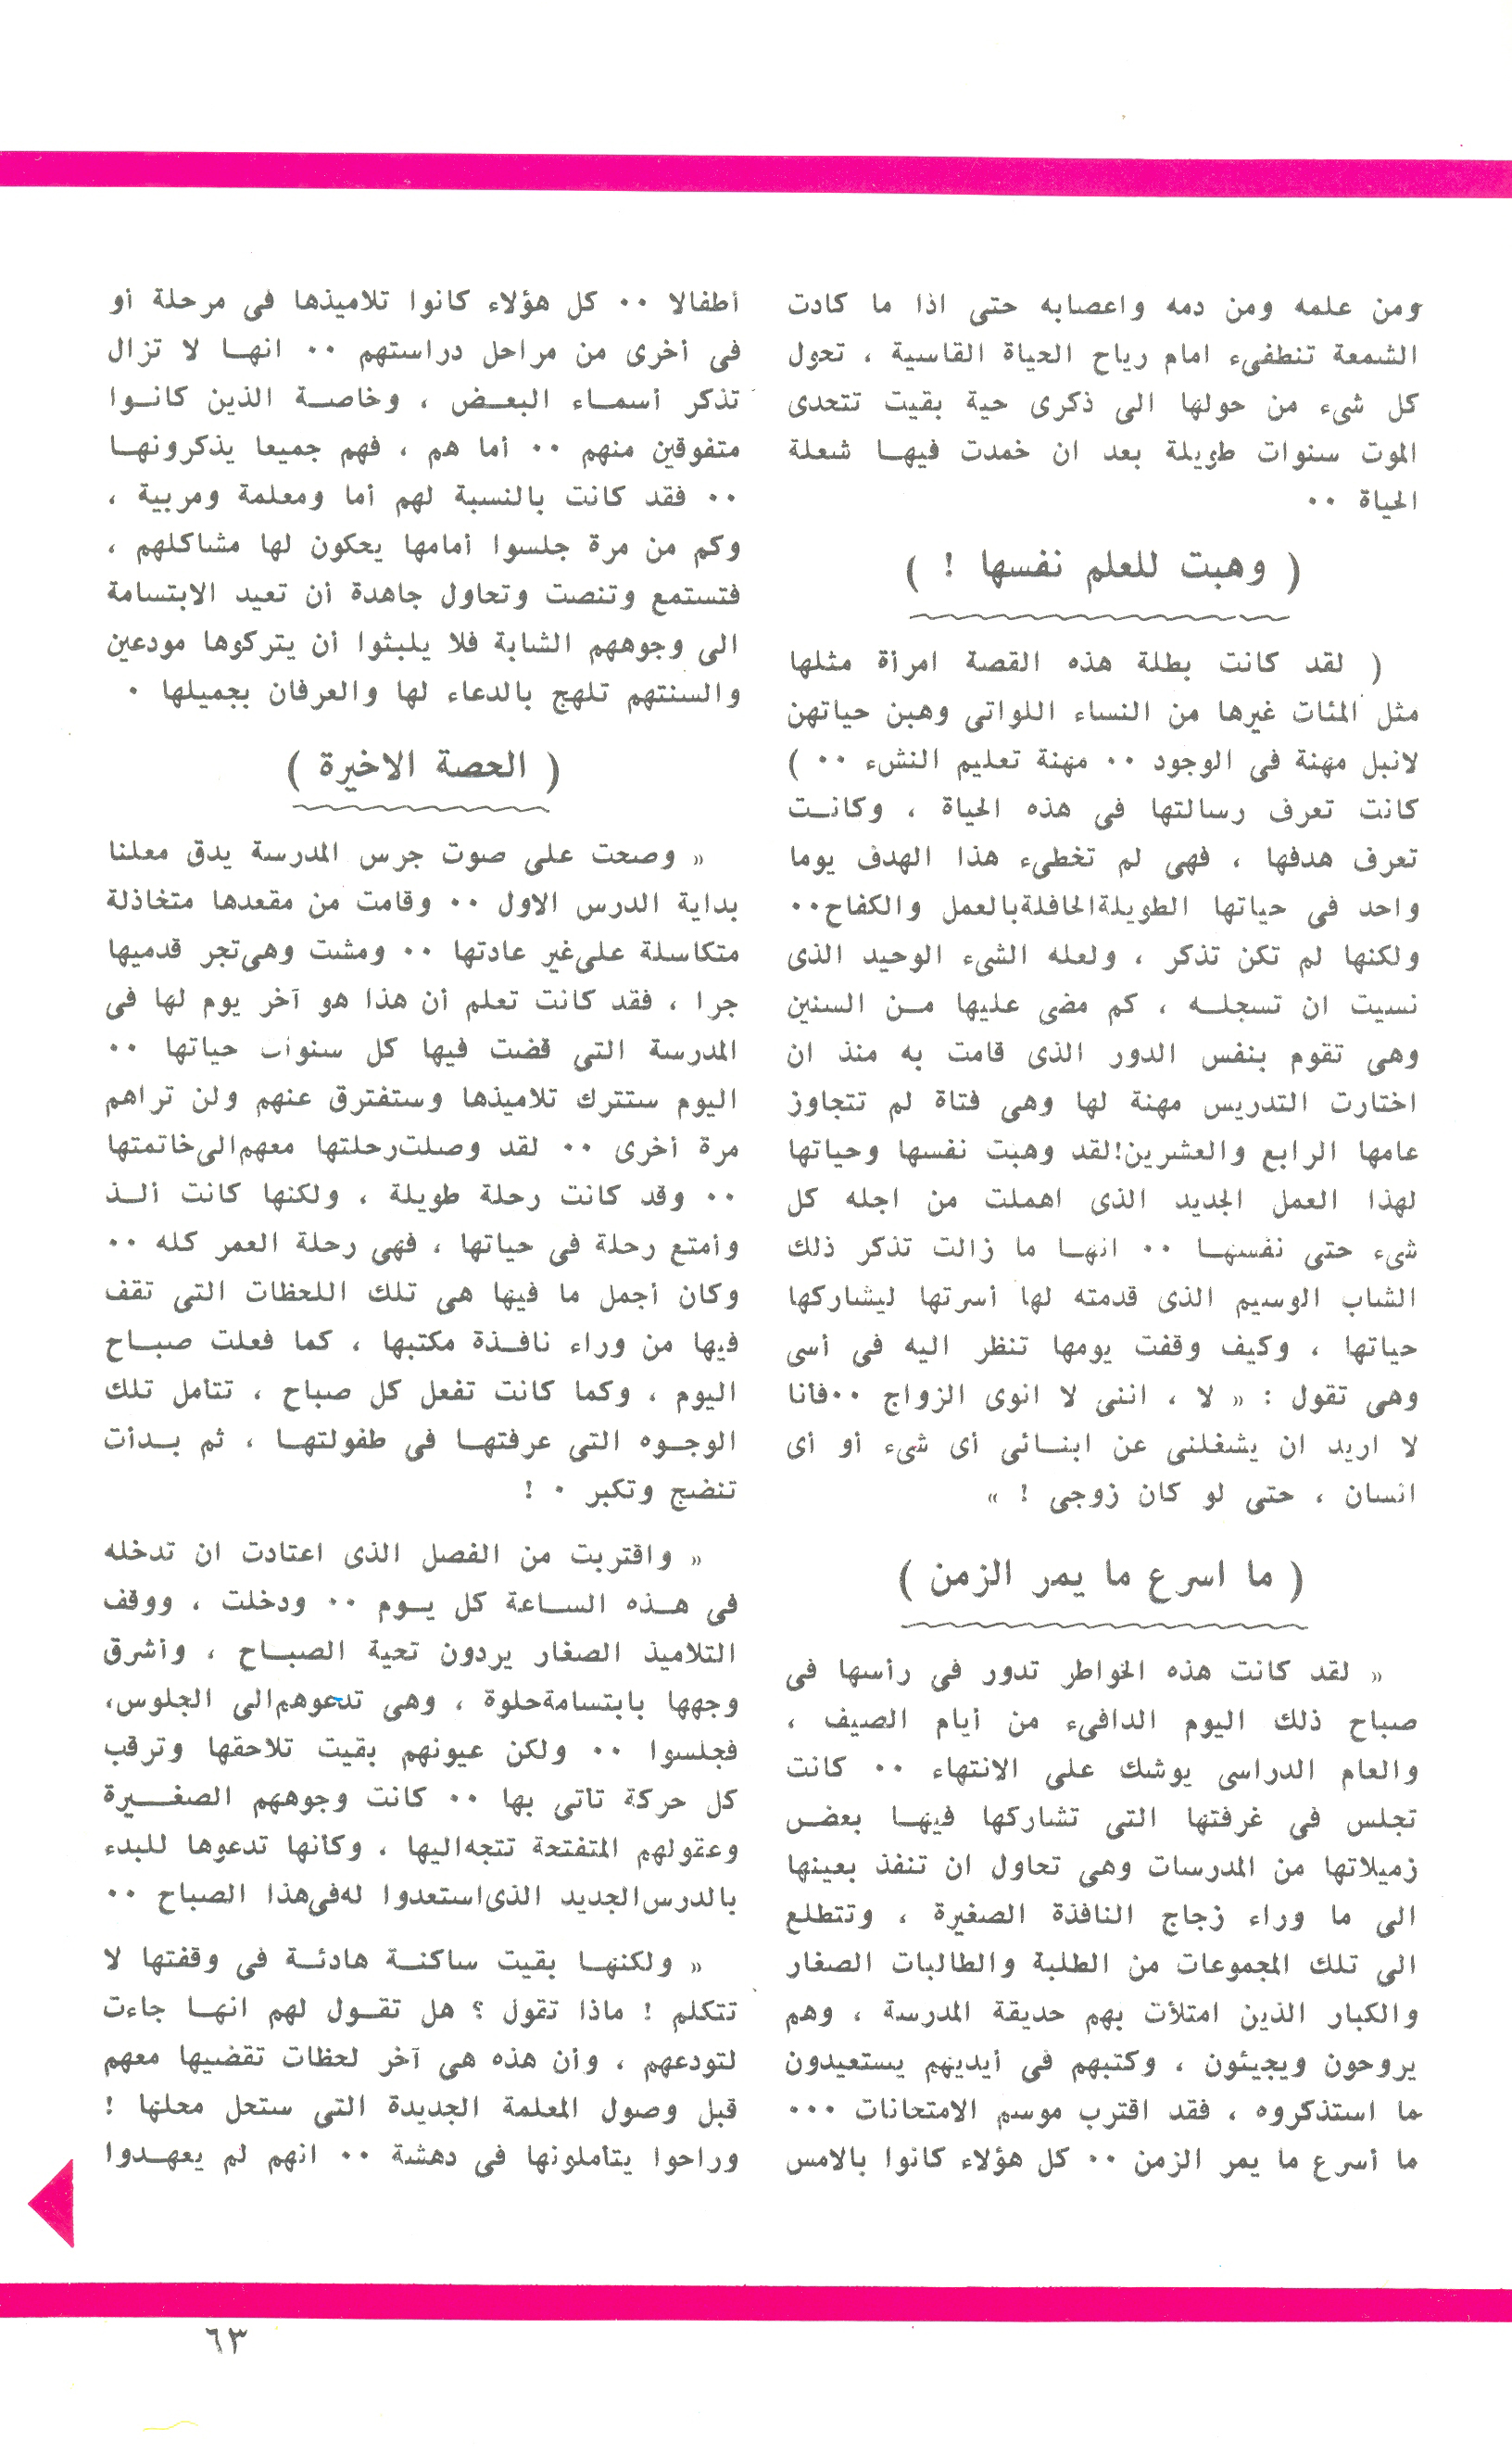 ومن علمه ومن دمه واعصابه حتى اذا ما كادت
الشمعة تنطفىء امام رياح الحياة القاسية ، تحول
كل شىء من حولها الى ذكرى حية بقيت تتحدى
الموت سنوات طويلة بعد ان خمدت فيهــا شعلة
الحياة ٠٠
( وهبت للعلم نفسها ! )
( لقد كانت بطلة هذه القصة امرأة مثلها
مثل المئات غيرها من النساء اللواتى وهبن حياتهن
لانبل مهنة فى الوجود ٠٠ مهنة تعليم النشء ٠٠ )
كانت تعرف رسالتها فى هذه الحياة ، وكانــت
تعرف هدفها ، فهى لم تخطىء هذا الهدف يوما
واحد فى حياتها الطويلة الحافلة بالعمل والكفاح ٠٠
ولكنها لم تكن تذكر ، ولعله الشىء الوحيد الذى
نسيت ان تسجلــه ، كم مضى عليها مــن السنين
وهى تقوم بنفس الدور الذى قامت به منذ ان
اختارت التدريس مهنة لها وهى فتاة لم تتجاوز
عامها الرابع والعشرين ! لقد وهبت نفسها وحياتها
لهذا العمل الجديد الذى اهملت من اجله كل
شىء حتى نفسهــا ٠٠ انهــا ما زالت تذكر ذلك
الشاب الوسيم الذى قدمته لها أسرتها ليشاركها
حياتها ، وكيف وقفت يومها تنظر اليه فى أسى
وهى تقول : « لا ، اننى لا انوى الزواج ٠٠ فأنا
لا اريد ان يشغلنى عن ابنــائى أى شىء أو أى
انسان ، حتى لو كان زوجى ! »
( ما اسرع ما يمر الزمن )
« لقد كانت هذه الخواطر تدور فى رأسها فى
صباح ذلك اليوم الدافىء من أيام الصيف ،
والعام الدراسى يوشك على الانتهاء ٠٠ كانت
تجلس فى غرفتها التى تشاركها فيهــا بعض
زميلاتها من المدرسات وهى تحاول ان تنفذ بعينها
الى ما وراء زجاج النافذة الصغيرة ، وتتطلع
الى تلك المجموعات من الطلبة والطالبات الصغار
والكبار الذين امتلأت بهم حديقة المدرسة ، وهم
يروحون ويجيئون ، وكتبهم فى أيديهم يستعيدون
ما استذكروه ، فقد اقترب موسم الامتحانات ٠٠٠
ما أسرع ما يمر الزمن ٠٠ كل هؤلاء كانوا بالامس
أطفالا ٠٠ كل هؤلاء كانوا تلاميذها فى مرحلة أو
فى أخرى من مراحل دراستهم ٠٠ انهــا لا تزال
تذكر أسمــاء البعــض ، وخاصــة الذين كانــوا
متفوقين منهم ٠٠ أما هم ، فهم جميعا يذكرونهــا
٠٠ فقد كانت بالنسبة لهم أما ومعلمة ومربية ،
وكم من مرة جلسوا أمامها يحكون لها مشاكلهم ،
فتستمع وتنصت وتحاول جاهدة أن تعيد الابتسامة
الى وجوههم الشابة فلا يلبثوا أن يتركوها مودعين
والسنتهم تلهج بالدعاء لها والعرفان بجميلها ٠
( الحصة الاخيرة )
« وصحت على صوت جرس المدرسة يدق معلنا
بداية الدرس الاول ٠٠ وقامت من مقعدها متخاذلة
متكاسلة على غير عادتها ٠٠ ومشت وهى تجر قدميها
جرا ، فقد كانت تعلم أن هذا هو آخر يوم لها فى
المدرسة التى قضت فيها كل سنوات حياتها ٠٠
اليوم ستترك تلاميذها وستفترق عنهم ولن تراهم
مرة أخرى ٠٠ لقد وصلت رحلتها معهم الى خاتمتها
٠٠ وقد كانت رحلة طويلة ، ولكنها كانت ألــذ
وأمتع رحلة فى حياتها ، فهى رحلة العمر كله ٠٠
وكان أجمل ما فيها هى تلك اللحظات التى تقف
فيها من وراء نافــذة مكتبها ، كما فعلت صبــاح
اليوم ، وكما كانت تفعل كل صباح ، تتأمل تلك
الوجــوه التى عرفتهــا فى طفولتهــا ، ثم بــدأت
تنضج وتكبر ٠ !
« واقتربت من الفصل الذى اعتادت ان تدخله
فى هــذه الساعة كل يــوم ٠٠ ودخلت ، ووقف
التلاميذ الصغار يردون تحية الصبــاح ، وأشرق
وجهها بابتسامة حلوة ، وهى تدعوهم الى الجلوس،
فجلسوا ٠٠ ولكن عيونهم بقيت تلاحقها وترقب
كل حركة تأتى بها ٠٠ كانت وجوههم الصغــيرة
وعقولهم المتفتحة تتجه اليها ، وكأنها تدعوها للبدء
بالدرس الجديد الذى استعدوا له فى هذا الصباح ٠٠
« ولكنهــا بقيت ساكنــة هادئــة فى وقفتها لا
تتكلم ! ماذا تقول ؟ هل تقــول لهم انهــا جاءت
لتودعهم ، وأن هذه هى آخر لحظات تقضيها معهم
قبل وصول المعلمة الجديدة التى ستحل محلها !
وراحوا يتأملونها فى دهشة ٠٠ انهم لم يعهــدوا
٦٣